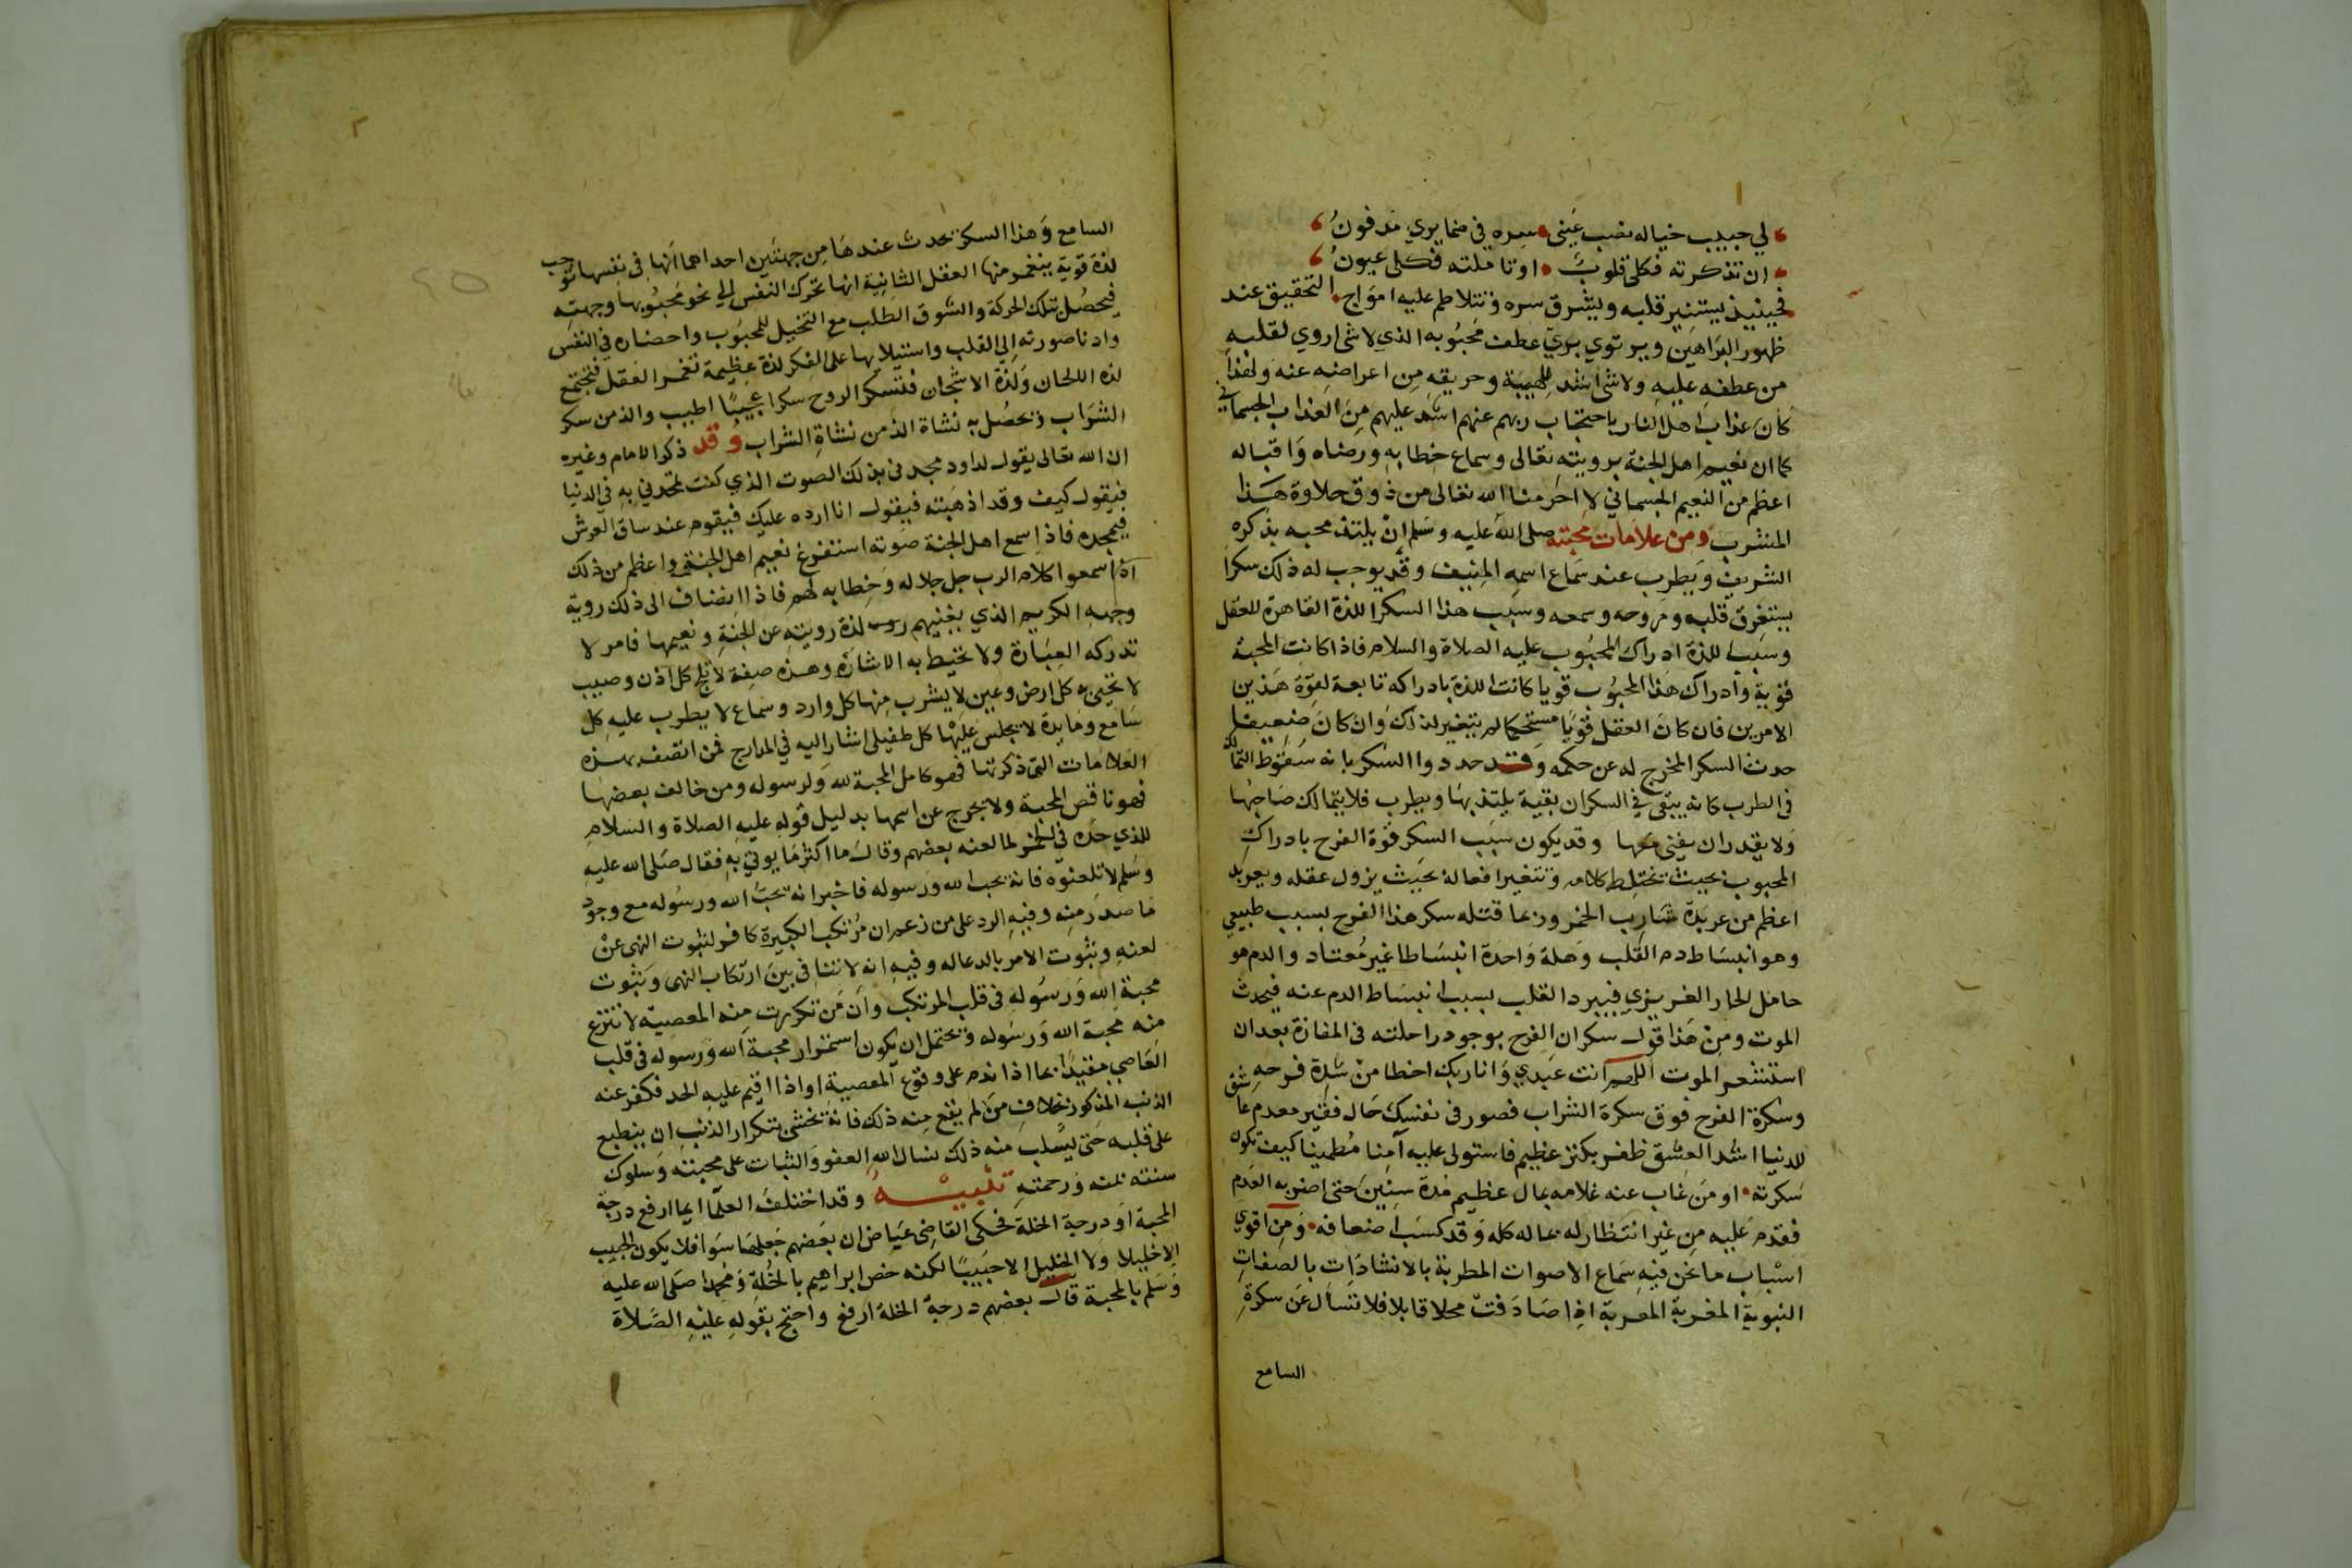 لي حبيب خياله نصب عيني سره في ضمايري مدفون
ان تذكرته فكلي قلوب او تاملته فكلي عيون
فحينيذ يستنير قلبه ويشرق سره وتتلاطم عليه امواج التحقيق عند
ظهور البراهين ويرتوي بري عطف محبوبه الذي لا شي اروي لقلبه
من عطفه عليه ولا شي اشد للهيبه وحريقه من اعراضه عنه ولهذا
كان عذاب اهل النار باحتجاب ربهم عنهم اشد عليهم من العذاب الجسماني
كما ان نعيم اهل الجنة برويته تعالى وسماع خطابه ورضاه واقباله
اعظم من النعيم الجسماني لا احرمنا الله تعالى من ذوق حلاوة هذا
المشرب ومن علامات محبته صلى الله عليه وسلم ان يلتذ محبه بذكره
الشريف ويطرب عند سماع اسمه المنيف وقد يوجب له ذلك سكرا
يستغرق قلبه وروحه وسمعه وسبب هذا السكر اللذة القاهرة للعقل
وسبب اللذة ادراك المحبوب عليه الصلاة والسلام فاذا كانت المحبة
قوية وادراك هذا المحبوب قويا كانت اللذة بادراكه تابعة لقوة هذين
الامرين فان كان العقل قويا مستحكما لم يتغير لذلك وان كان ضعيفا
حدث السكر المخرج له عن حكمه وقد حددوا السكر بانه سقوط التمالك
في الطرب كانه يبقي في السكران بقية يلتذ بها ويطرب فلا يتمالك صاحبها
ولا يقدر ان يفني معها وقد يكون سبب السكر قوة الفرح بادراك
المحبوب بحيث تختلط كلامه وتتغير افعاله بحيث يزول عقله ويعربد
اعظم من عربدة شارب الخمر وربما قتله سكر هذا الفرح بسبب طبيعي
وهو انبساط دم القلب وهلة واحدة انبساطا غير معتاد والدم هو
حامل الحار الغريزي فيبرد القلب بسبب انبساط الدم عنه فيحدث
الموت ومن هذا قول سكران الفرح بوجود راحلته في المفازة بعد ان
استشعر الموت اللهم انت عبدي وانا ربك اخطا من شدة فرحه
وسكرة الفرح فوق سكرة الشراب فصور في نفسك حال فقير معدم عاشق
للدنيا اشد العشق ظفر بكنز عظيم فاستولى عليه آمنا مطمينا كيف تكون
سكرته او من غاب عنه غلامه بمال عظيم مدة سنين حتى اضر به العدم
فقدم عليه من غير انتظار له بماله كله وقد كسب اضعافه ومن اقوي
اسباب ما نحن فيه سماع الاصوات المطربة بالانشادات بالصفات
النبوية المغربة المعربة اذا صادفت محلا قابلا فلا تسأل عن سكرة
السامع
السامع وهذا السكر تحدث عندها من جهتين احداهما انها في نفسها توجب
لذة قوية ينغمر منها العقل الثانية انها تحرك النفس الي نحو محبوبها وجهته
فيحصل بتلك الحركة والشوق الطلب مع التخيل للمحبوب واحضاره في النفس
وادنا صورته الي القلب واستيلايها على الفكر لذة عظيمة تغمر العقل فتجتمع
لذة اللحان ولذة الاشجان فتسكر الروح سكرا عجيبا اطيب والذ من سكر
الشراب وتحصل به نشاة الذ من نشاة الشراب وقد ذكر الامام وغيره
ان الله تعالى يقول لداود مجدني بذلك الصوت الذي كنت تمجدني به في الدنيا
فيقول كيف وقد اذهبته فيقول انا ارده عليك فيقوم عند ساق العرش
فيمجده فاذا سمع اهل الجنة صوته استفرغ نعيم اهل الجنة واعظم من ذلك
اذا سمعوا كلام الرب جل جلاله وخطابه لهم فاذا انضاف الى ذلك روية
وجهه الكريم الذي يغنيهم لذة رويته عن الجنة ونعيمها فامر لا
تدركه العبارة ولا تحيط به الاشارة وهذه صفة لا تلج كل اذن وصيب
لا تحيى به كل ارض وعين لا يشرب منها كل وارد وسماع لا يطرب عليه كل
سامع ومايدة لا يجلس عليها كل طفيلي اشار اليه في المدارج فمن اتصف بهذه
العلامات التي ذكرتها فهو كامل المحبة لله ولرسوله ومن خالف بعضها
فهو ناقص المحبة ولا يخرج عن اسمها بدليل قوله عليه الصلاة والسلام
للذي حده في الخمر لما لعنه بعضهم وقال ما اكثر ما يوتي به فقال صلى الله عليه
وسلم لا تلعنوه فانه يحب الله ورسوله فاخبر انه يحب الله ورسوله مع وجود
ما صدر منه وفيه الرد على من زعم ان مرتكب الكبيرة كافر لثبوت النهي عن
لعنه وثبوت الامر بالدعا له وفيه انه لا تنافي بين ارتكاب النهي وثبوت
محبة الله ورسوله في قلب المرتكب وان من تكررت منه المعصية لا تنزع
منه محبة الله ورسوله ويحتمل ان يكون استمرار محبة الله ورسوله في قلب
العاصي مقيدا بما اذا ندم على وقوع المعصية او اذا اقيم عليه الحد فكفر عنه
الذنب المذكور بخلاف من لم يقع منه ذلك فانه يخشى بتكرار الذنب ان ينطبع
على قلبه حتى يسلب منه ذلك نسال الله العفو والثبات على محبته وسلوك
سنته بمنه ورحمته تنبيه وقد اختلف العلما ايما ارفع درجة
المحبة او درجة الخلة فحكى القاضي عياض ان بعضهم جعلهما سوا فلا يكون الحبيب
الا خليلا ولا الخليل الا حبيبا لكنه خص ابراهيم بالخلة ومحمدا صلى الله عليه
وسلم بالمحبة قال بعضهم درجة الخلة ارفع واحتج بقوله عليه الصلاة